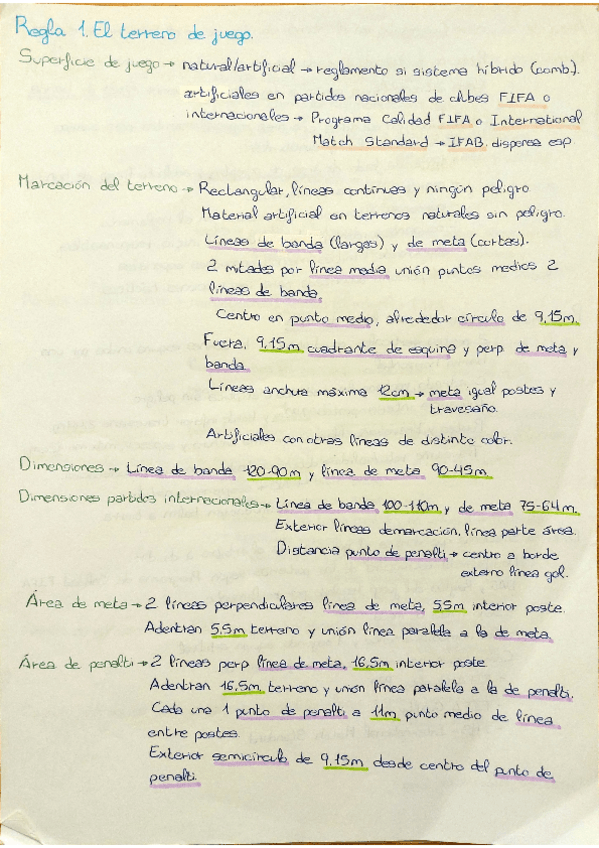 Regla 1. El terreno de juego.
Superficie de juego → natural/artificial → reglamento si sistema híbrido (comb).
artificiales en partidos nacionales de clubes FIFA o
internacionales → Programa Calidad FIFA o International
Match Standard → IFAB. dispensa esp
Marcación del terreno → Rectangular, líneas continuas y ningún peligro
Material artificial en terrenos naturales sin peligro.
Líneas de banda (largas) y de meta (cortas).
2 mitades por línea media unión puntos medios 2
líneas de banda.
Centro en punto medio, alrededor círculo de 9,15m.
Fuera, 9,15m cuadrante de esquina y perp de meta y
banda.
Líneas anchura máxima 12cm → meta igual postes y
travesaño.
Artificiales con otras líneas de distinto color.
Dimensiones → Línea de banda 120-90m y línea de meta 90-45m
Dimensiones partidos internacionales → Línea de banda 100-110m y de meta 75-64m.
Exterior líneas demarcación, línea parte área.
Distancia punto de penalti → centro a borde
externo línea gol.
Área de meta → 2 líneas perpendiculares línea de meta, 5,5m interior poste.
Adentran 5,5m terreno y unión línea paralela a la de meta.
Área de penalti → 2 líneas perp línea de meta, 16,5m interior poste
Adentran 16,5m terreno y unión línea paralela a la de penalti.
Cada una 1 punto de penalti a 11m punto medio de línea
entre postes.
Exterior semicírculo de 9,15m desde centro del punto de
penalti.